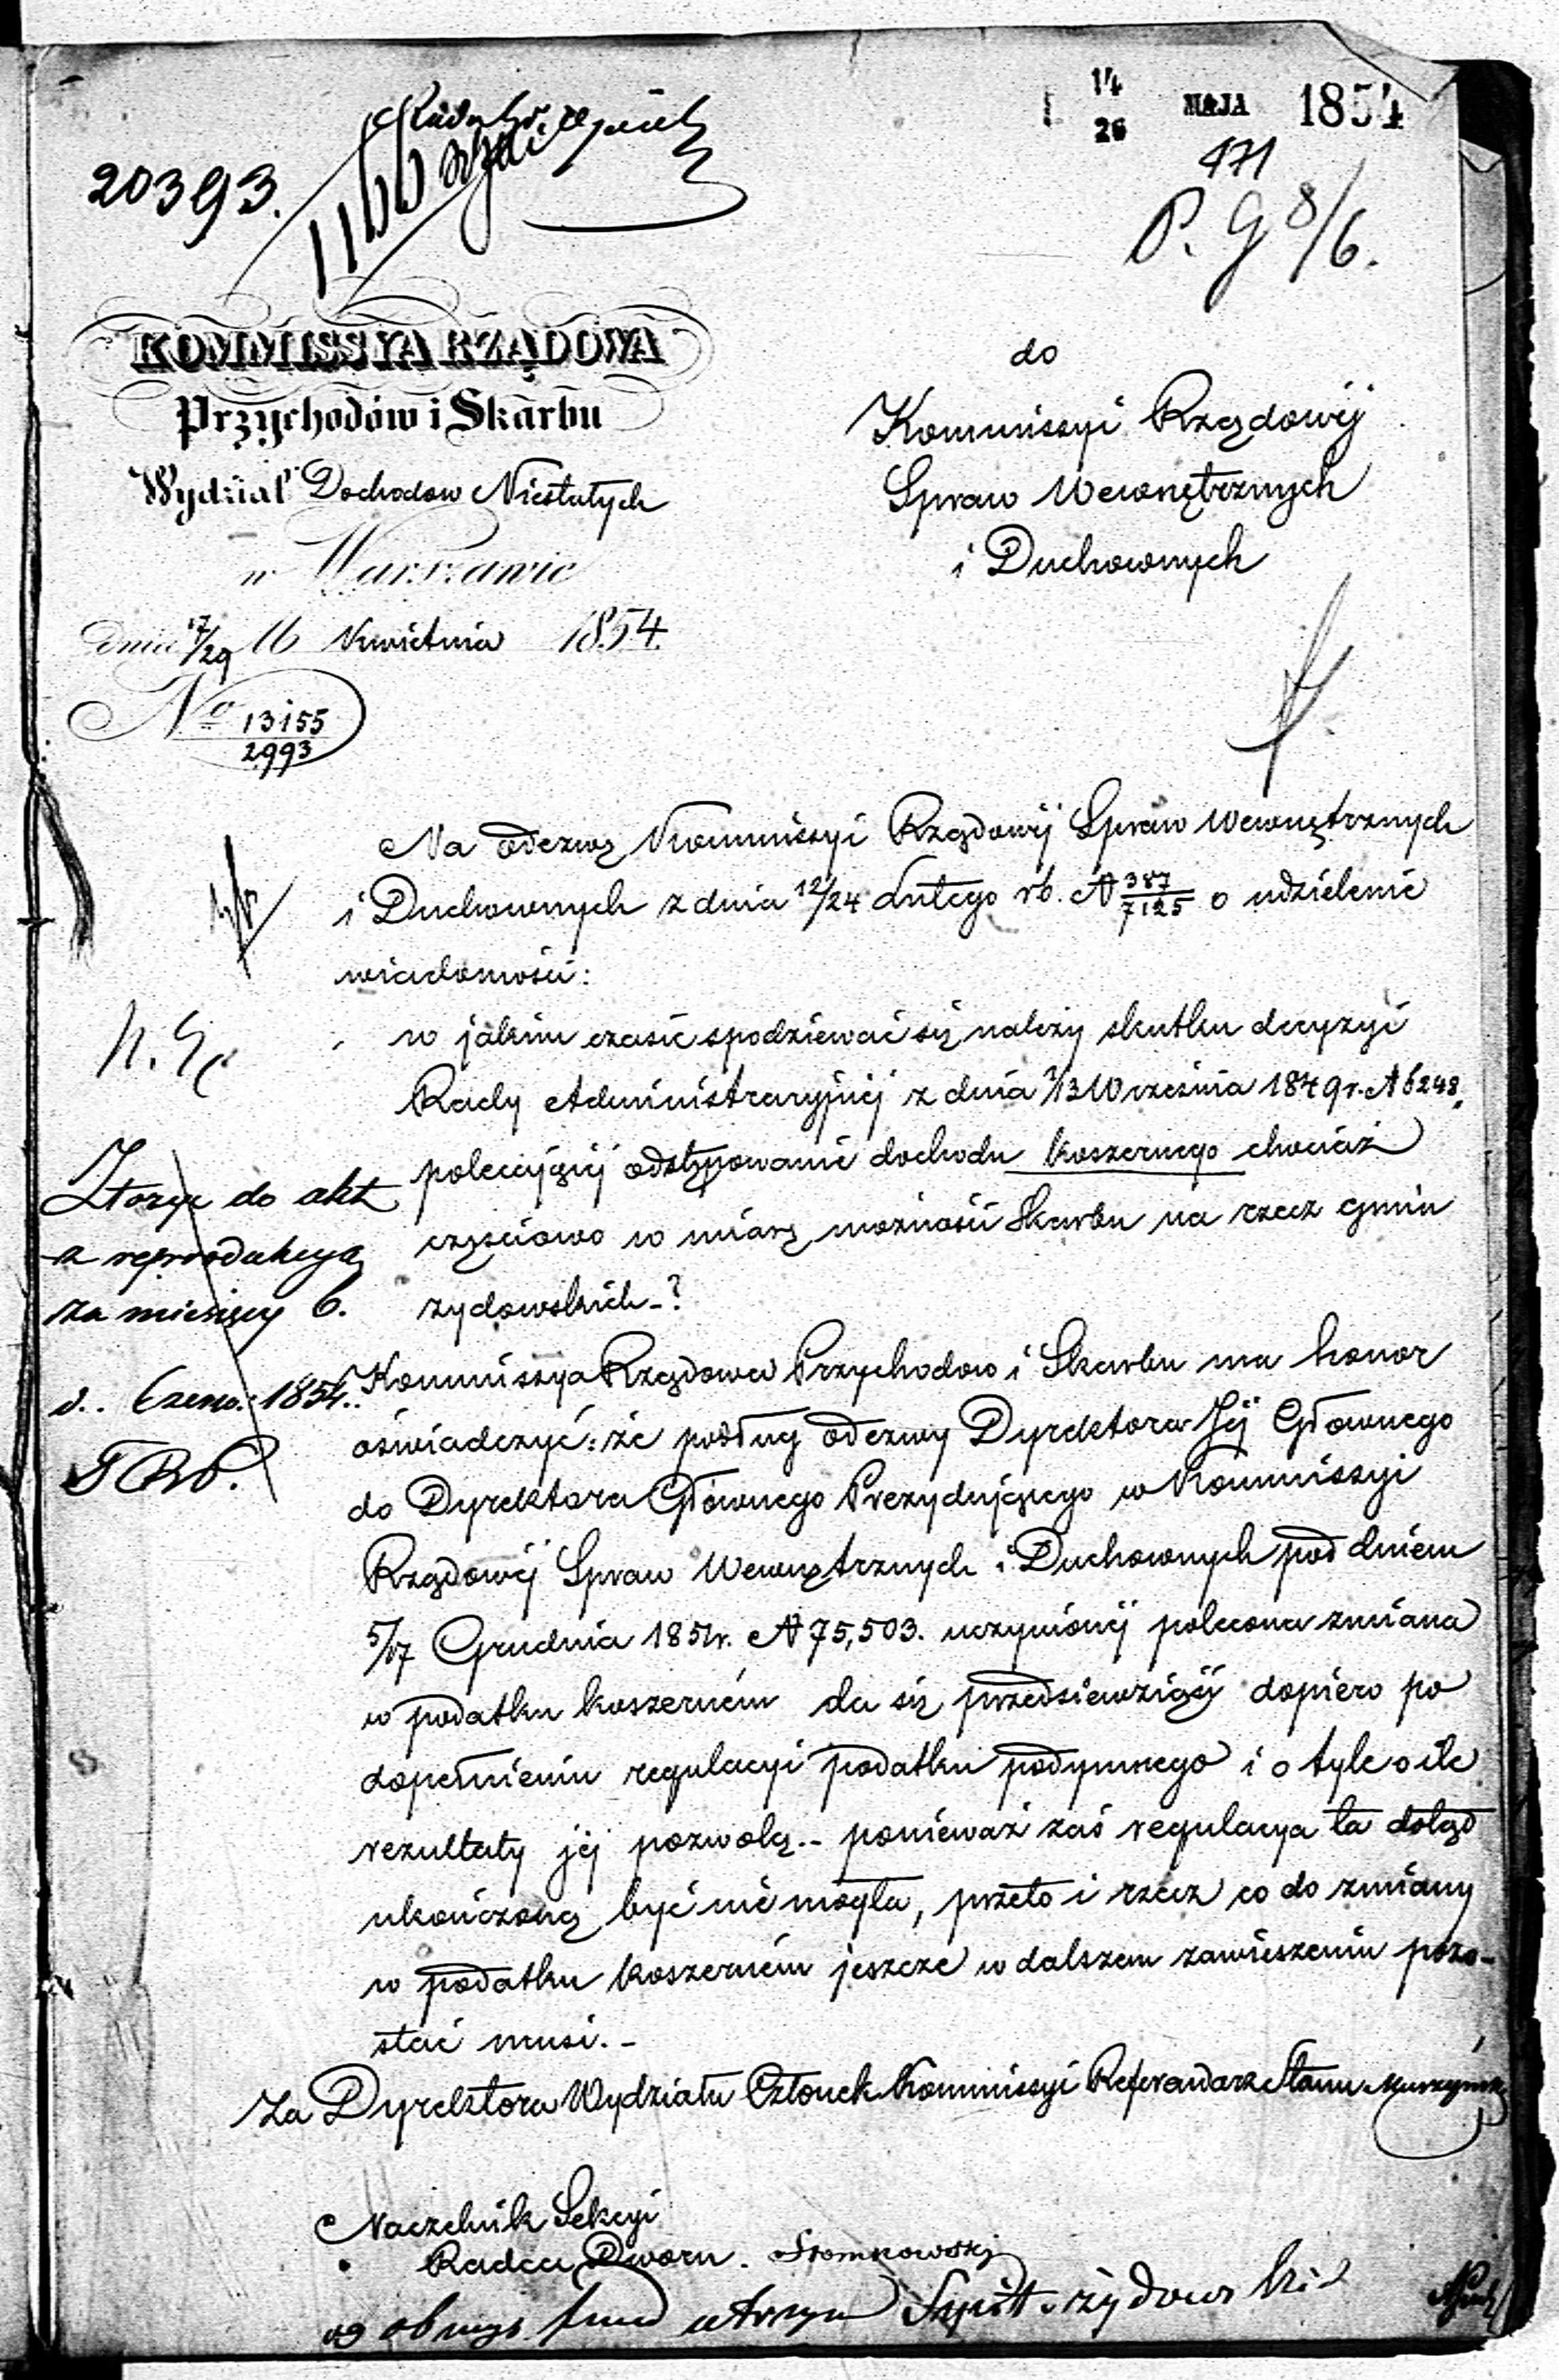 14
26 MAJA 1854
471
20393.
P. G 8/6.
KOMMISSYA RZĄDOWA
Przychodów i Skarbu
Wydział Dochodow Niestałych
w Warszawie
dnia 17/29 16 Kwietnia 1854.
No 13155
2993
do
Kommissyi Rządowéj
Spraw Wewnętrznych
i Duchownych
Na odezwę Kommissyi Rządowéj Spraw Wewnętrznych
i Duchownych z dnia 12/24 Lutego rb. N 387/7125 o udzielenie
wiadomości:
w jakim czasie spodziewać się należy skutku decyzyi
Rady Administracyjnéj z dnia 1/13 Września 1849 r. N 6248,
polecającéj odstępowanie dochodu koszernego chociaż
częściowo w miarę możności Skarbu na rzecz gmin
żydowskich_?
Złożyć do akt
z reprodukcyą
za miesięcy 6.
d.. Czerw. 1854.
Kommissya Rządowa Przychodow i Skarbu ma honor
oświadczyć: że podług odezwy Dyrektora Jéj Głownego
do Dyrektora Głównego Prezydującego w Kommissyi
Rządowéj Spraw Wewnętrznych i Duchownych pod dniem
5/17 Grudnia 1851r. N 75,503. uczynionéj polecona zmiana
w podatku koszerném da się przedsiewziąść dopiéro po
dopełnieniu regulacyi podatku podymnego i o tyle o ile
rezultaty jéj pozwolą.- ponieważ zaś regulacya ta dotąd
ukończoną być nie mogła, przeto i rzecz co do zmiany
w podatku koszerném jeszcze w dalszem zawieszeniu pozo-
stać musi.-
Za Dyrektora Wydziału Członek Kommissyi Referendarz Stanu
Naczelnik Sekcyi
Radca Dworu. Słomkowski